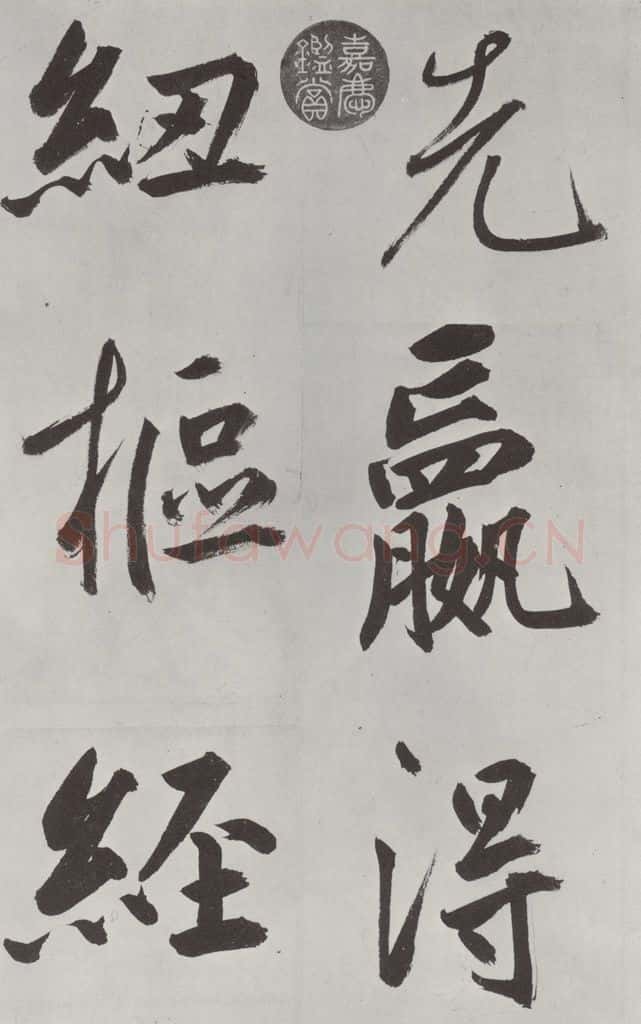 嘉慶
鑑賞
先嬴得
紐樞經
Shufawang.CN